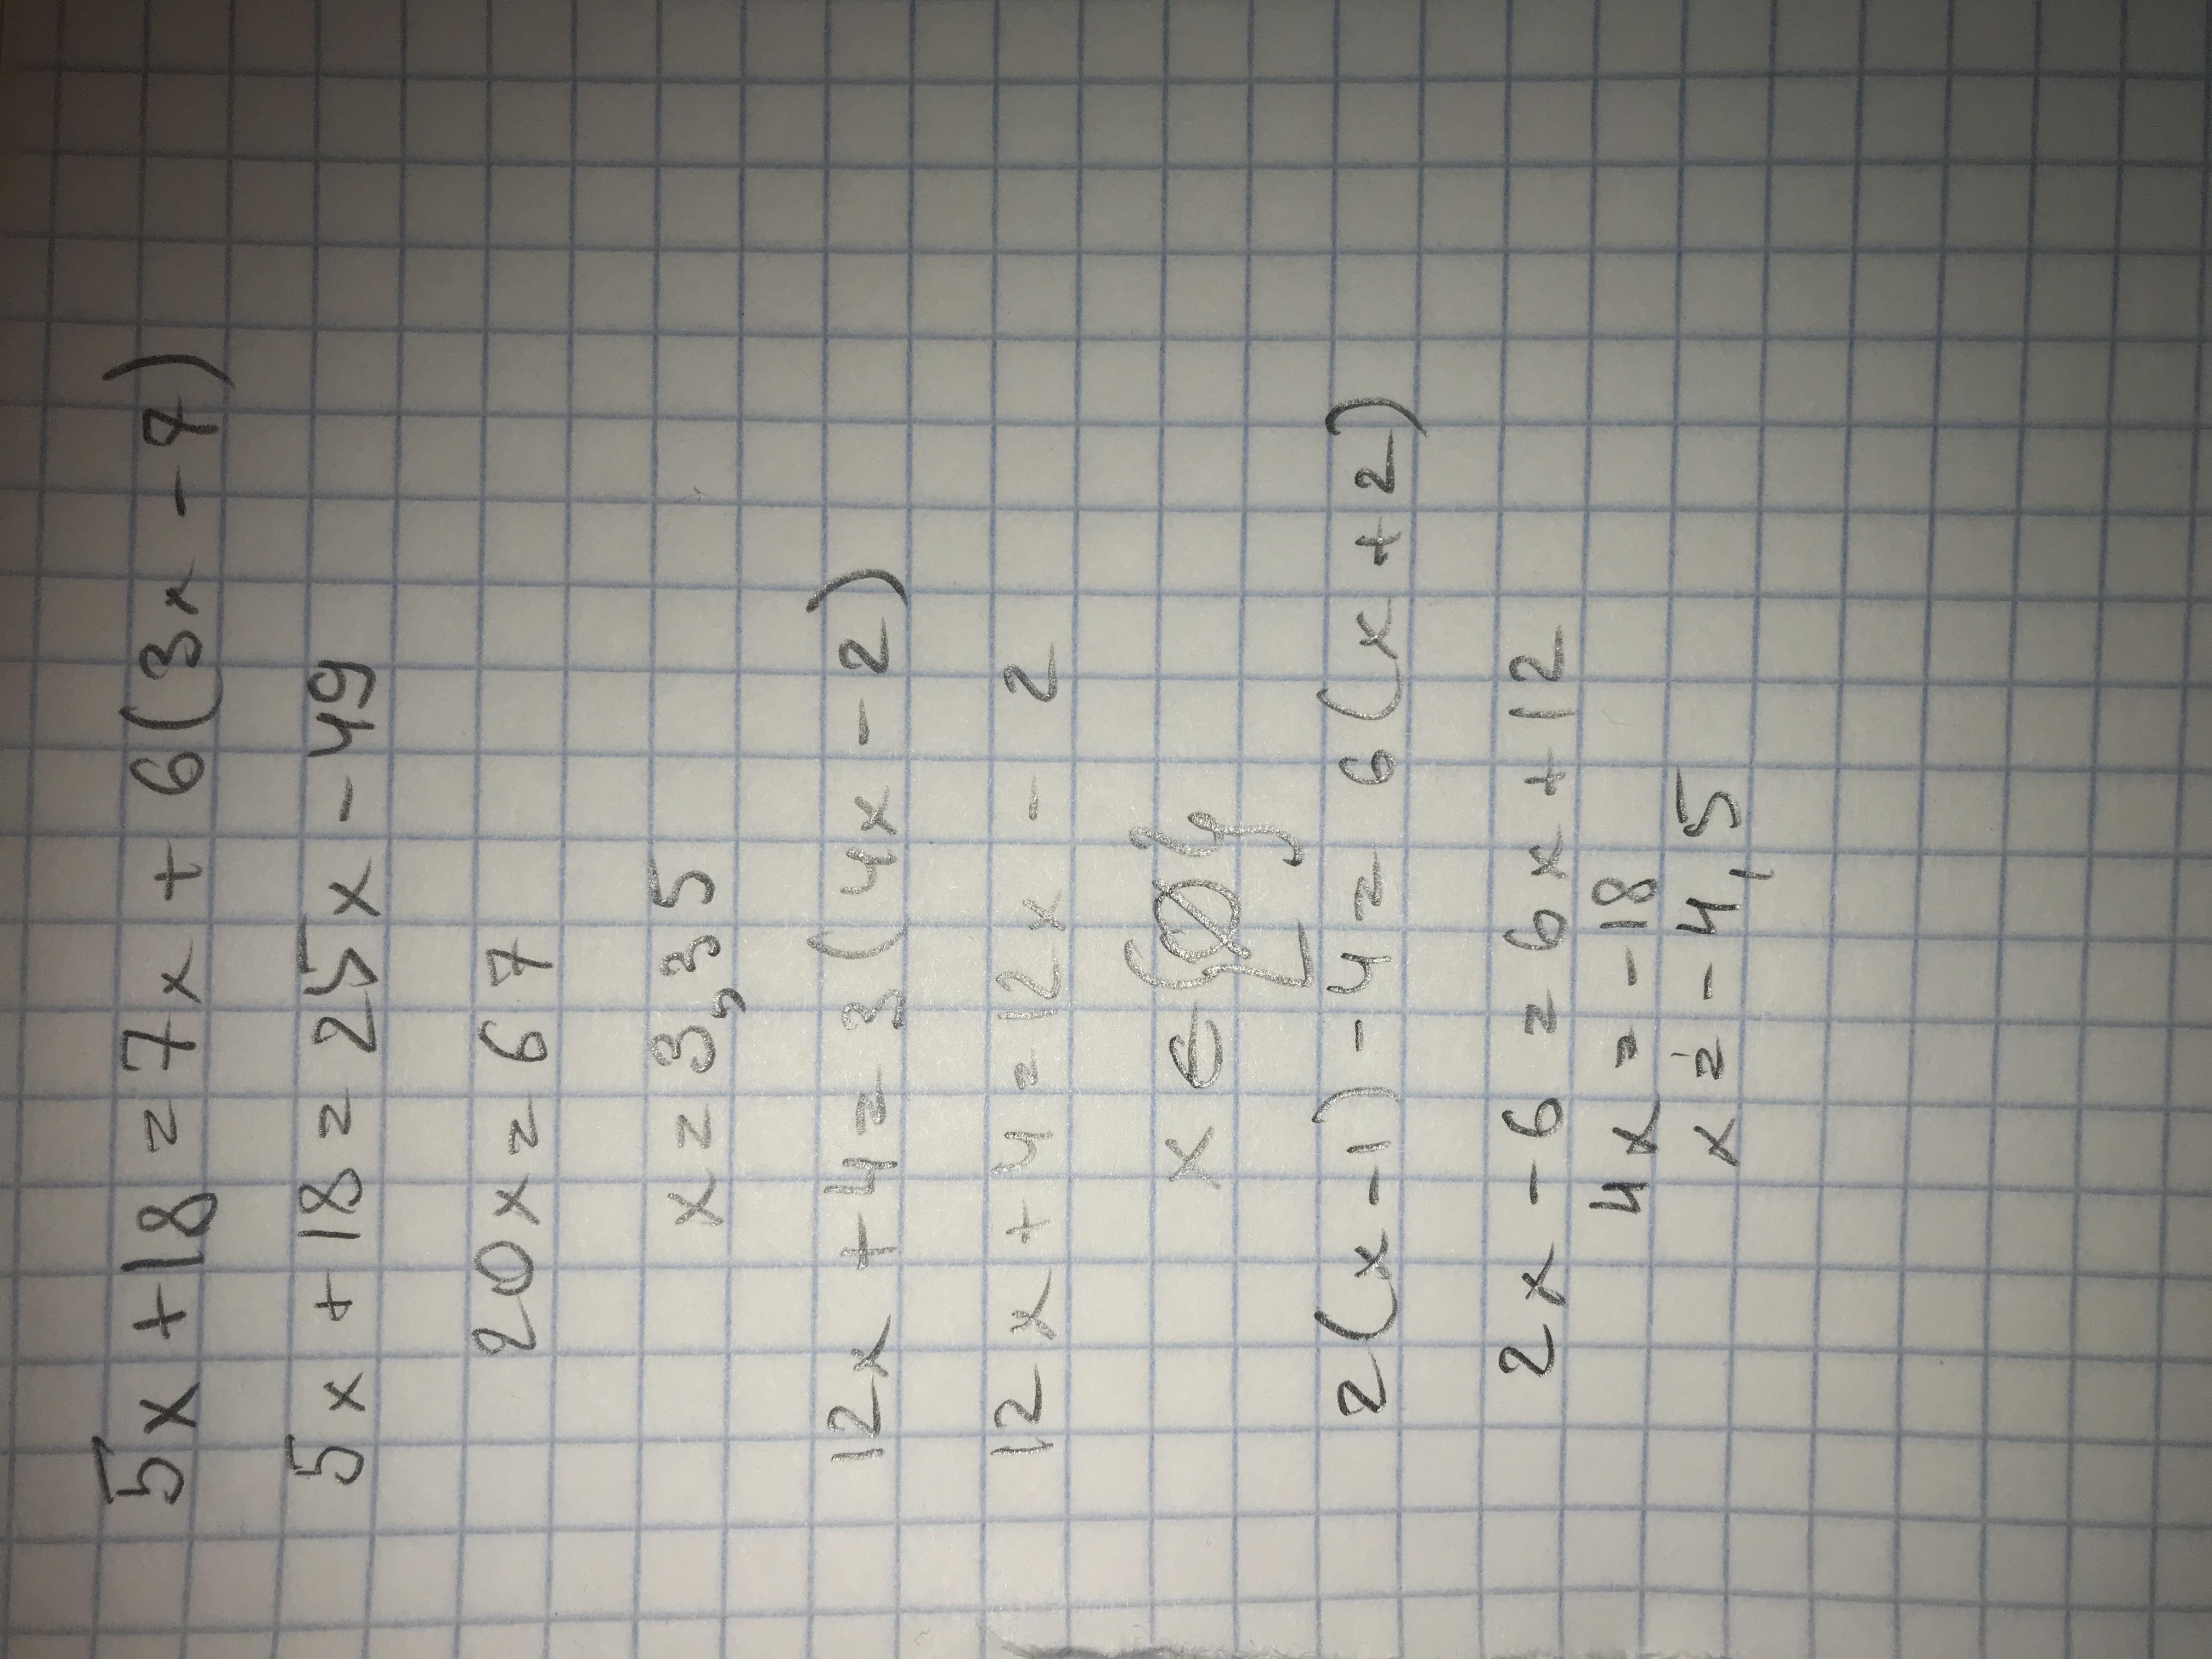 5x + 18 = 7x + 6(3x - 7)
5x + 18 = 25x - 49
20x = 67
x = 3,35
12x + 4 = 3(4x - 2)
12x + 4 = 12x - 2
x ∈ {∅}
2(x - 1) - 4 = 6(x + 2)
2x - 6 = 6x + 12
4x = -18
x = -4,5